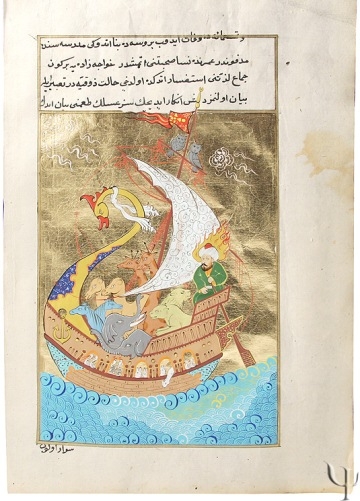 و تسمائه ده وفات ایدوب بروسه ده بنا اتدوکی مدرسه سنده
مدفوندر عمرنده نسا صحبتنی اتمشدر خواجه زاده یه بر کون
جماع لذتنی استفسار اتدکده اولدخی حالت ذوقیه در تعبیر ایله
بیان اولنمز دیمش انکار ایدیجک سنز عسلک طعمنی بیان ایدک